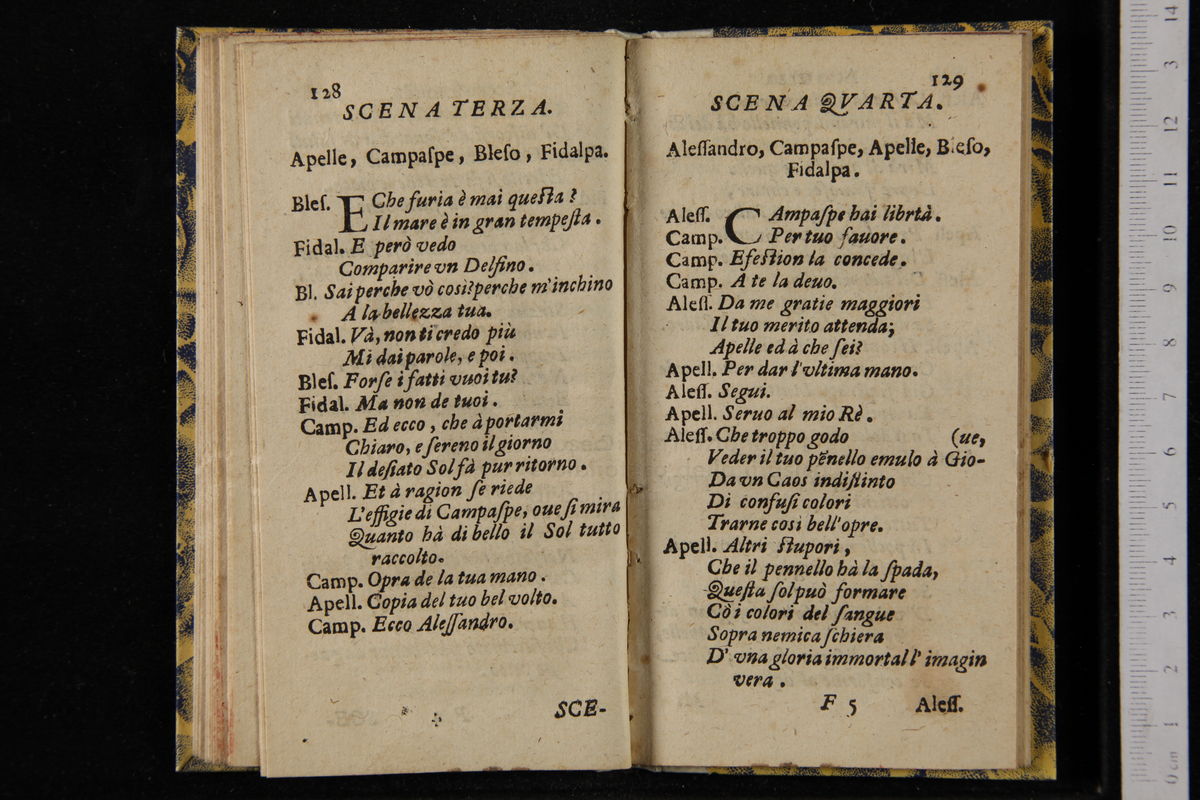 128
SCENA TERZA.
Apelle, Campaſpe, Bleſo, Fidalpa.
Bleſ. E Che furia è mai queſta ?
Il mare è in gran tempeſta .
Fidal. E però vedo
Comparire vn Delfino .
Bl. Sai perche vò così? perche m'inchino
A la bellezza tua.
Fidal. Và, non ti credo più
Mi dai parole, e poi .
Bleſ. Forſe i fatti vuoi tu?
Fidal. Ma non de tuoi .
Camp. Ed ecco , che à portarmi
Chiaro, e ſereno il giorno
Il deſiato Sol fà pur ritorno .
Apell. Et à ragion ſe riede
L'effigie di Campaſpe, oue ſi mira
Quanto hà di bello il Sol tutto
raccolto.
Camp. Opra de la tua mano .
Apell. Copia del tuo bel volto.
Camp. Ecco Aleſſandro.
SCE-
129
SCENA QVARTA.
Aleſſandro, Campaſpe, Apelle, Bleſo,
Fidalpa.
Aleſſ. CAmpaſpe hai librtà .
Camp. Per tuo fauore .
Camp. Efeſtion la concede .
Camp. A te la deuo.
Aleſſ. Da me gratie maggiori
Il tuo merito attenda;
Apelle ed à che ſei?
Apell. Per dar l'vltima mano.
Aleſſ. Segui.
Apell. Seruo al mio Rè .
Aleſſ. Che troppo godo (ue,
Veder il tuo pẽnello emulo à Gio-
Da vn Caos indiſtinto
Di confuſi colori
Trarne così bell'opre.
Apell. Altri ſtupori ,
Che il pennello hà la ſpada,
Queſta ſol può formare
Cò i colori del ſangue
Sopra nemica ſchiera
D' vna gloria immortal l' imagin
vera .
F 5 Aleſſ.
0 cm 1 2 3 4 5 6 7 8 9 10 11 12 3 14